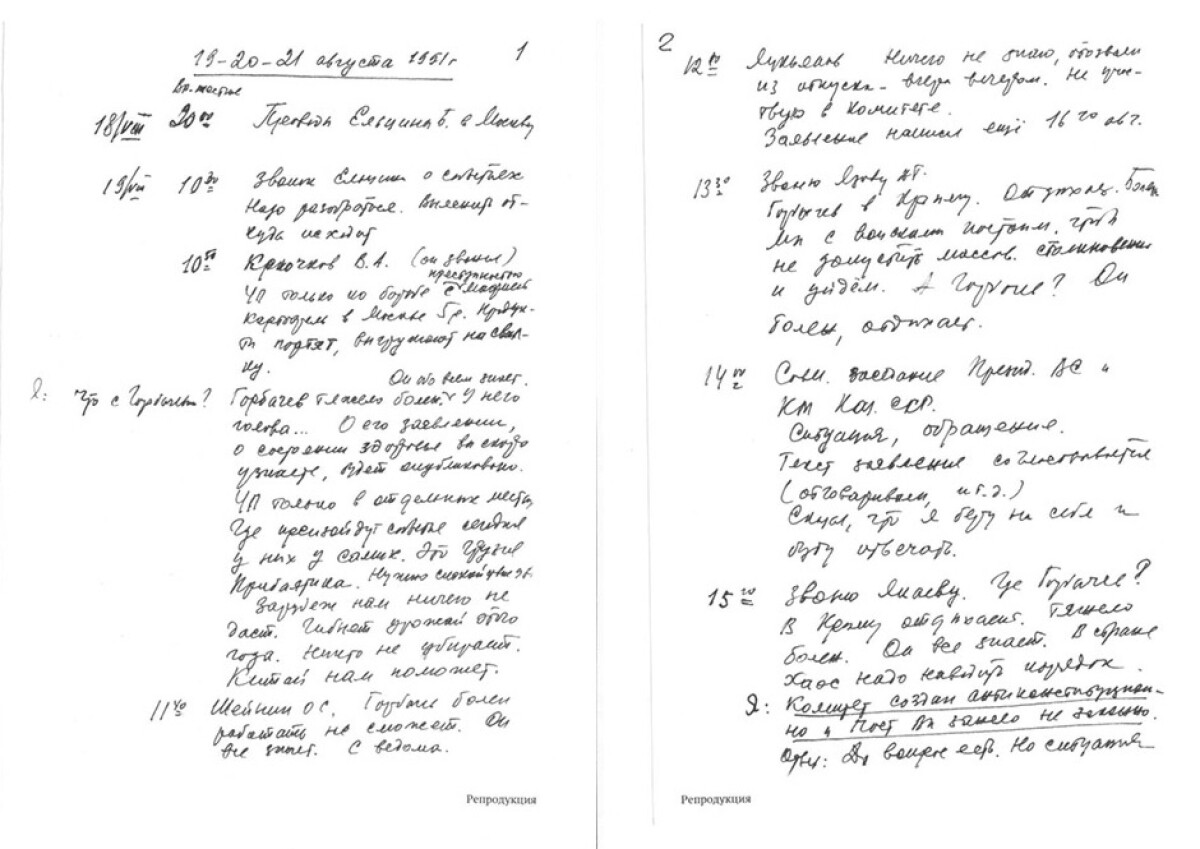 1
19-20-21 августа 1991г
18/VIII 20⁰⁰ Проводы Ельцина Б. в Москву
19/VIII 10³⁰ Звонок Ельцина о событиях
Надо разобраться. Выяснить от-
куда исходит
10⁵⁰ Крючков В.А. (он звонил)
преступностью
ЧП только по борьбе с мафией
Картофель в Москве 5р. Продук-
ты портят, выгружают на свал-
ку.
Он обо всем знает.
Я: Что с Горбачевым? Горбачев тяжело болен. У него
голова... О его заявлении,
о состоянии здоровья вы скоро
узнаете, будет опубликовано.
ЧП только в отдельных местах
Где произойдут события сегодня
у них у самих. Это Грузия
Прибалтика. Нужно спокойствие
Зарубеж нам ничего не
даст. Гибнет урожай этого
года. Никто не убирает.
Китай нам поможет.
11⁴⁰ Шейнин О С. Горбачев болен
работать не сможет. Он
все знает. С ведома.
Репродукция
2
12⁰⁰ Лукьянов Ничего не знаю, отозвали
из отпуска - вчера вечером. Не учас-
твую в комитете.
Заявление написал ещё 16го авг.
13³⁰ Звоню Язову ДТ.
Горбачев в Крыму. Отдыхает. Болен
Мы с войсками постоим, чтоб
не допустить массов. столкновения
и уйдём. А Горбачев? Он
болен, отдыхает.
14⁰⁰ Совм. заседание Презид. ВС и
КМ Каз. ССР.
Ситуация, обращение.
Текст заявление согласовывается
(отговаривали, и т.д.)
Сказал, что я беру на себя и
буду отвечать.
15⁰⁰ Звоню Янаеву. Где Горбачев?
В Крыму отдыхает. Тяжело
болен. Он все знает. В стране
Хаос надо наводить порядок.
Я: Комитет создан антиконституцион-
но и Пост Вы заняли не законно.
Ответ: Да вопрос есть. Но ситуация
Репродукция